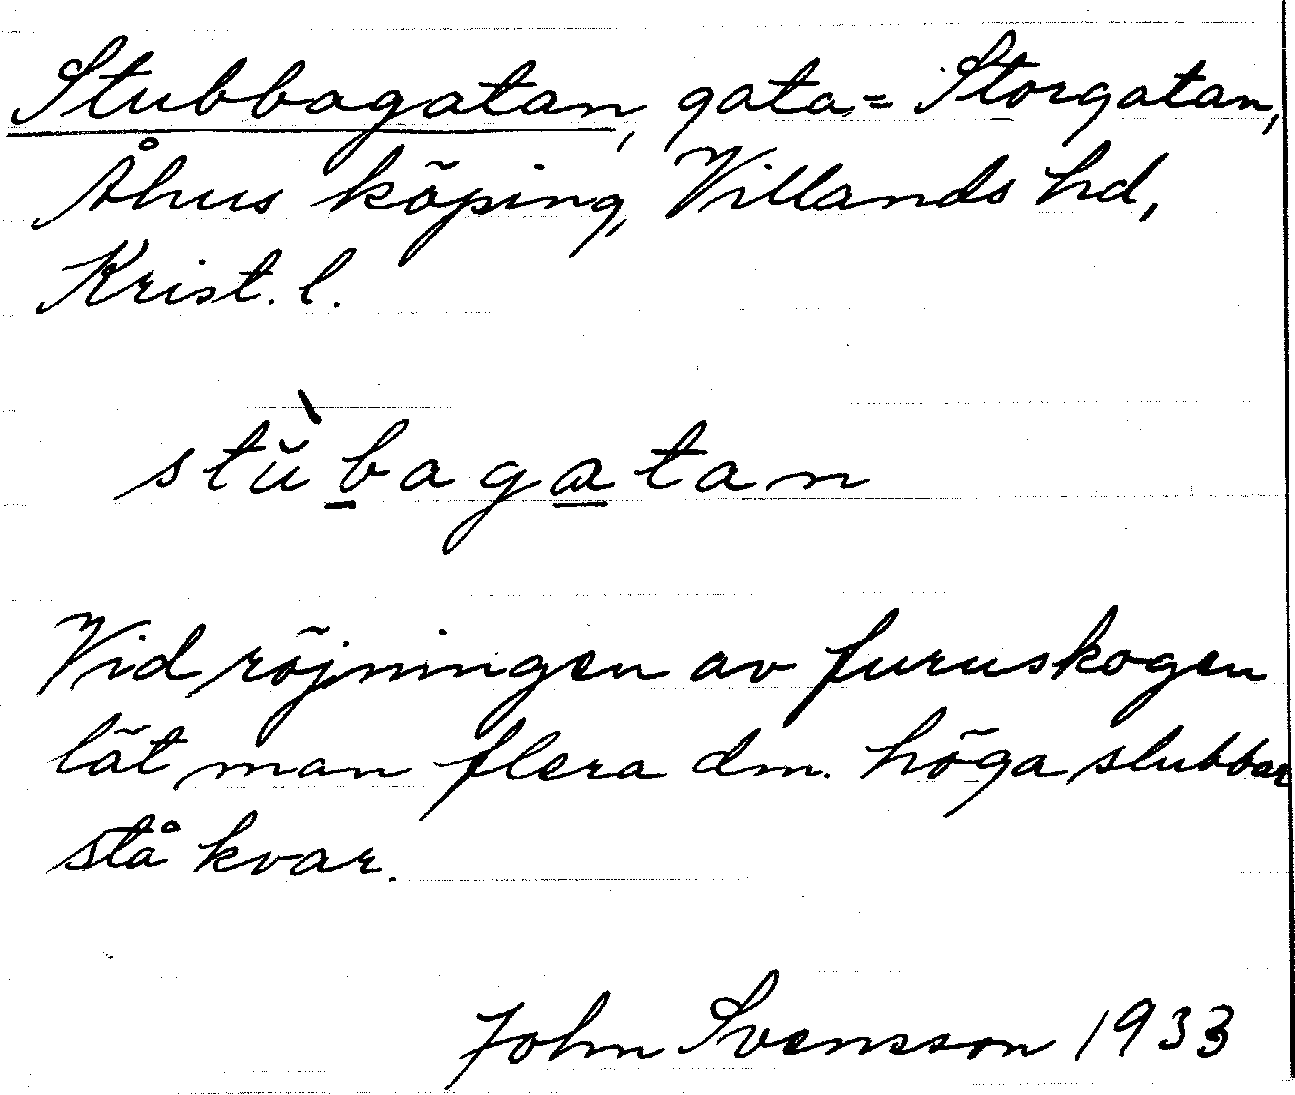 Stubbagatan, gata = Storgatan,
Åhus köping, Villands hd,
Krist. l.
stŭ̀bagatan
Vid röjningen av furuskogen
lät man flera dm. höga stubbar
stå kvar.
John Svensson 1933